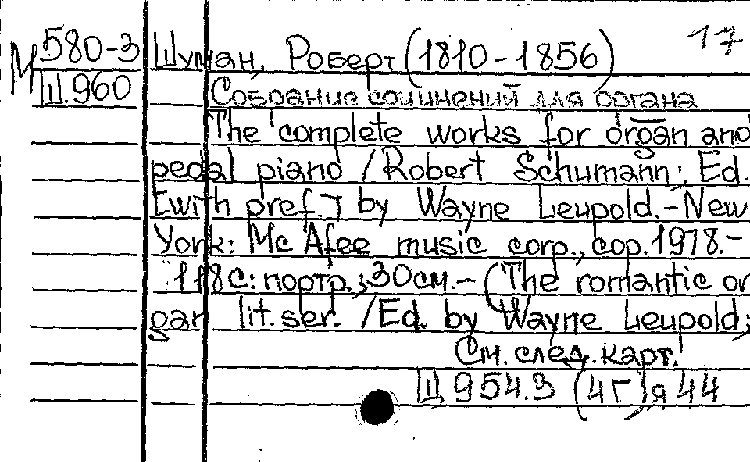 17
М 580-3 Шуман, Роберт (1810-1856)
Ш.960 Собрание сочинений для органа
The complete works for organ and
pedal piano / Robert Schumann; Ed.
[with pref.] by Wayne Leupold.-New
York: Mc Afee music corp., cop.1978.-
118с: портр.; 30см.- (The romantic or
gan lit. ser. / Ed. by Wayne Leupold;
См. след. карт.
Щ 954.3 (4Г)я 44